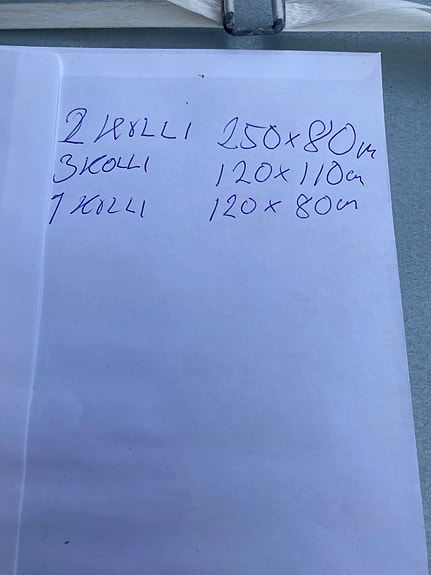 2 KOLLI 250x80cm
3 KOLLI 120x110cm
1 KOLLI 120x80cm